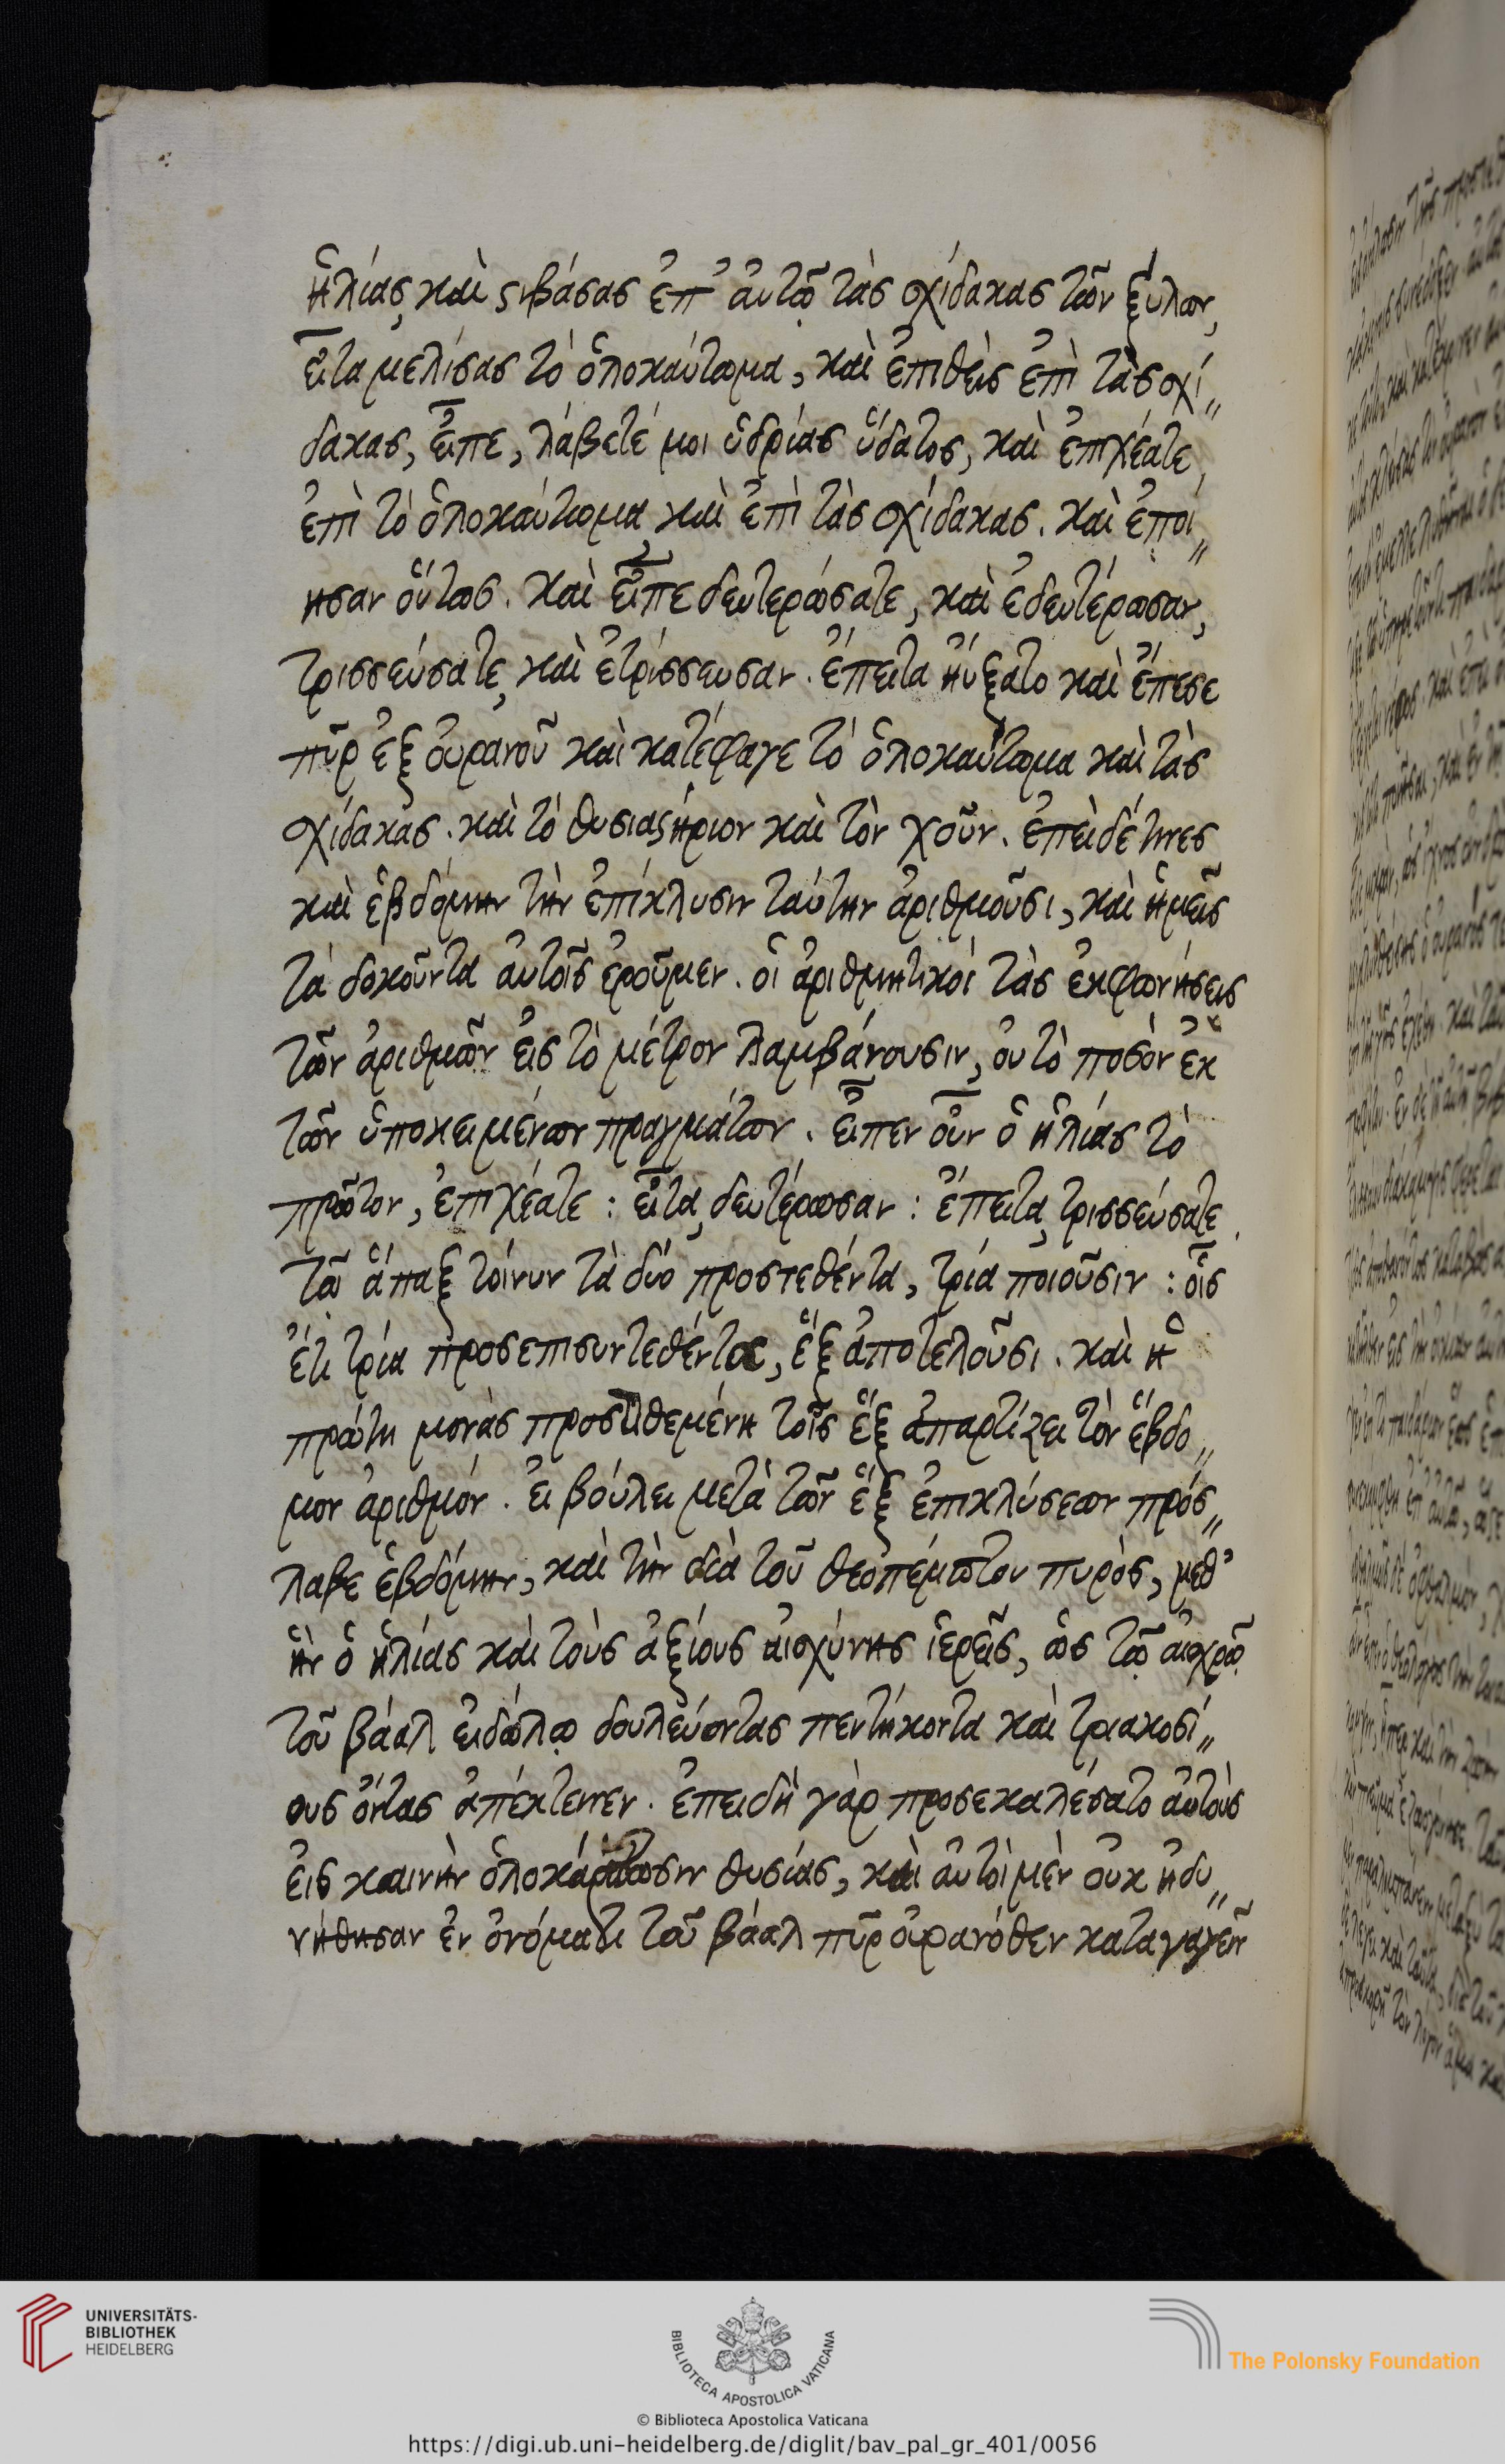 ἡλίας, καὶ στιβάσας ἐπ' αὐτῷ τὰς σχίδακας τῶν ξύλων,
εἶτα μελίσας τὸ ὁλοκαύτωμα, καὶ ἐπιθεὶς ἐπὶ τὰς σχί„
δακας, εἶπε, λάβετέ μοι ὑδρίας ὕδατος, καὶ ἐπιχέατε,
ἐπὶ τὸ ὁλοκαύτωμα, καὶ ἐπὶ τὰς σχίδακας. καὶ ἐποί„
ησαν οὕτως. καὶ εἶπε δευτερώσατε, καὶ ἐδευτέρωσαν,
τρισσεύσατε, καὶ ἐτρίσσευσαν. ἔπειτα ηὔξατο καὶ ἔπεσε
πῦρ ἐξ οὐρανοῦ καὶ κατέφαγε τὸ ὁλοκαύτωμα καὶ τὰς
σχίδακας. καὶ τὸ θυσιαστήριον καὶ τὸν χοῦν. ἐπεὶ δέ τινες
καὶ ἑβδόμην τὴν ἐπίκλυσιν ταύτην ἀριθμοῦσι, καὶ ἡμεῖς
τὰ δοκοῦντα αὐτοῖς ἐροῦμεν. οἱ ἀριθμητικοὶ τὰς ἐκφωνήσεις
τῶν ἀριθμῶν εἰς τὸ μέτρον λαμβάνουσιν, οὐ τὸ ποσὸν ἐκ
τῶν ὑποκειμένων πραγμάτων. εἶπεν οὖν ὁ ἡλίας τὸ
πρῶτον, ἐπιχέατε : εἶτα, δευτέρωσαν : ἔπειτα, τρισσεύσατε.
τῶ ἅπαξ τοίνυν τὰ δύο προστεθέντα, τρία ποιοῦσιν : οἷς
ἔτι τρία προσεπισυντεθέντα, ἓξ ἀποτελοῦσι. καὶ ἡ
πρώτη μονὰς προστιθεμένη τοῖς ἓξ ἀπαρτίζει τὸν ἕβδο„
μον ἀριθμόν. εἰ βούλει μετὰ τῶν ἓξ ἐπικλύσεων πρόσ„
λαβε ἑβδόμην, καὶ τὴν διὰ τοῦ θεοπέμπτου πυρὸς, μεθ'
ἣν ὁ ἡλίας καὶ τοὺς ἀξίους αἰσχύνης ἱερεῖς, ὡς τῷ αἰσχρῷ
τοῦ βάαλ εἰδώλῳ δουλεύοντας πεντήκοντα καὶ τριακοσί„
ους ὄντας ἀπέκτεινεν. ἐπειδὴ γὰρ προσεκαλέσατο αὐτοὺς
εἰς καινὴν ὁλοκάρπωσιν θυσίας, καὶ αὐτοὶ μὲν οὐκ ἠδυ„
νήθησαν ἐν ὀνόματι τοῦ βάαλ πῦρ οὐρανόθεν καταγαγεῖν
UNIVERSITÄTS-
BIBLIOTHEK
HEIDELBERG
BIBLIOTECA APOSTOLICA VATICANA
The Polonsky Foundation
© Biblioteca Apostolica Vaticana
https://digi.ub.uni-heidelberg.de/diglit/bav_pal_gr_401/0056